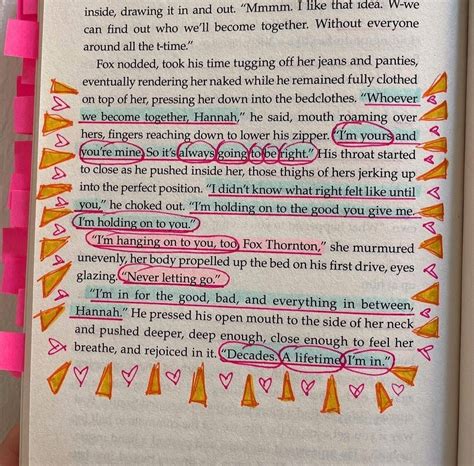 inside, drawing it in and out. “Mmmm. I like that idea. W-we
can find out who we’ll become together. Without everyone
around all the t-time.”
Fox nodded, took his time tugging off her jeans and panties,
eventually rendering her naked while he remained fully clothed
on top of her, pressing her down into the bedclothes. “Whoever
we become together, Hannah,” he said, mouth roaming over
hers, fingers reaching down to lower his zipper. “I’m yours and
you’re mine. So it’s always going to be right.” His throat started
to close as he pushed inside her, those thighs of hers jerking up
into the perfect position. “I didn’t know what right felt like until
you,” he choked out. “I’m holding on to the good you give me.
I’m holding on to you.”
“I’m hanging on to you, too, Fox Thornton,” she murmured
unevenly, her body propelled up the bed on his first drive, eyes
glazing. “Never letting go.”
“I’m in for the good, bad, and everything in between,
Hannah.” He pressed his open mouth to the side of her neck
and pushed deeper, deep enough, close enough to feel her
breathe, and rejoiced in it. “Decades. A lifetime. I’m in.”